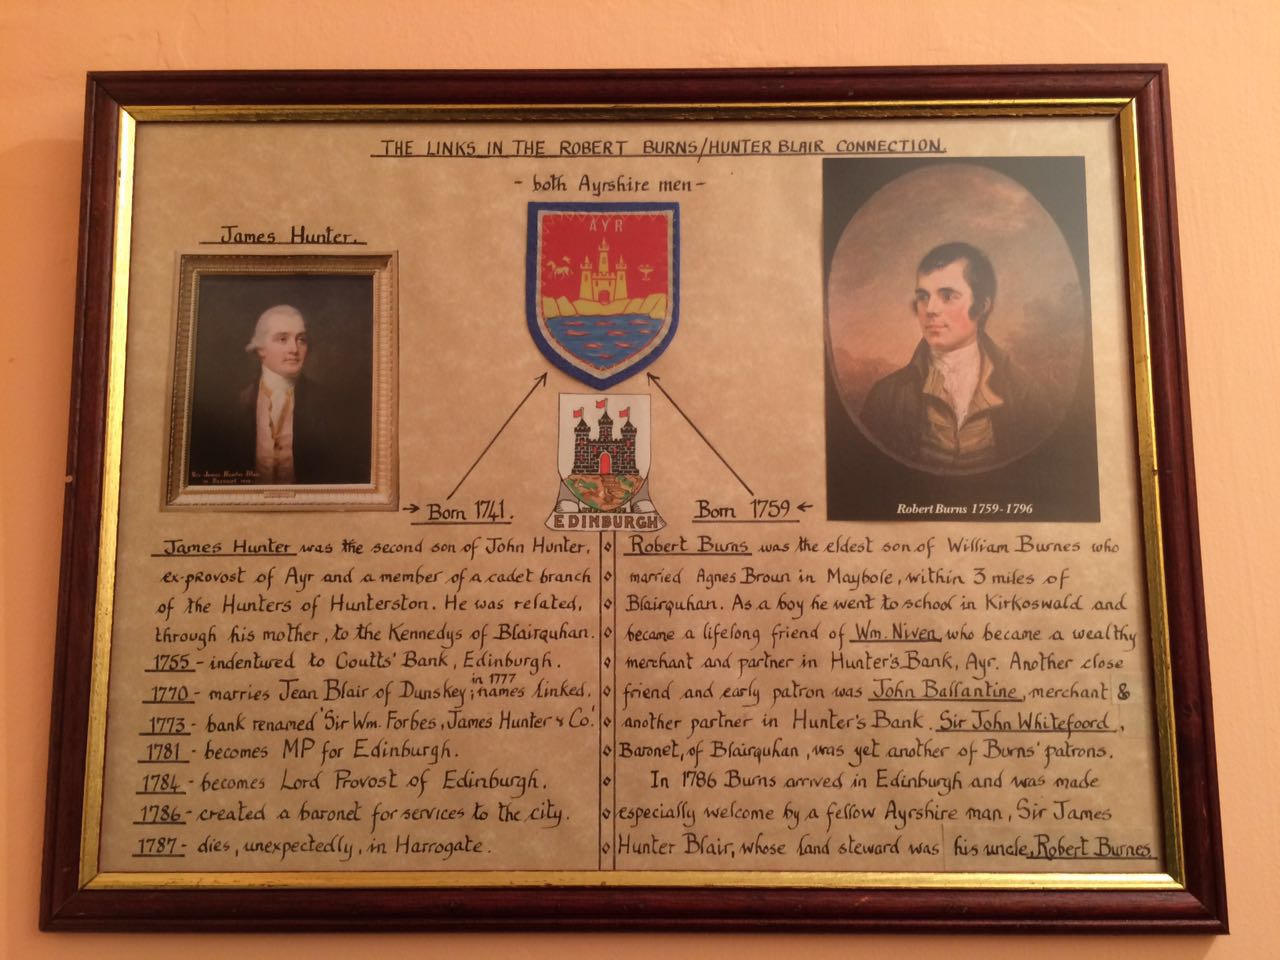 THE LINKS IN THE ROBERT BURNS/HUNTER BLAIR CONNECTION.
- both Ayrshire men -
James Hunter.
AYR
EDINBURGH
Born 1741.
Born 1759
Robert Burns 1759-1796
James Hunter was the second son of John Hunter,
ex-provost of Ayr and a member of a cadet branch
of the Hunters of Hunterston. He was related,
through his mother, to the Kennedys of Blairquhan.
1755 - indentured to Coutts' Bank, Edinburgh.
1770 - marries Jean Blair of Dunskey; in 1777 names linked.
1773 - bank renamed 'Sir Wm. Forbes, James Hunter & Co.'
1781 - becomes MP for Edinburgh.
1784 - becomes Lord Provost of Edinburgh.
1786 - created a baronet for services to the city.
1787 - dies, unexpectedly, in Harrogate.
Robert Burns was the eldest son of William Burnes who
married Agnes Broun in Maybole, within 3 miles of
Blairquhan. As a boy he went to school in Kirkoswald and
became a lifelong friend of Wm. Niven, who became a wealthy
merchant and partner in Hunter's Bank, Ayr. Another close
friend and early patron was John Ballantine, merchant &
another partner in Hunter's Bank. Sir John Whitefoord,
Baronet, of Blairquhan, was yet another of Burns' patrons.
In 1786 Burns arrived in Edinburgh and was made
especially welcome by a fellow Ayrshire man, Sir James
Hunter Blair, whose land steward was his uncle, Robert Burnes